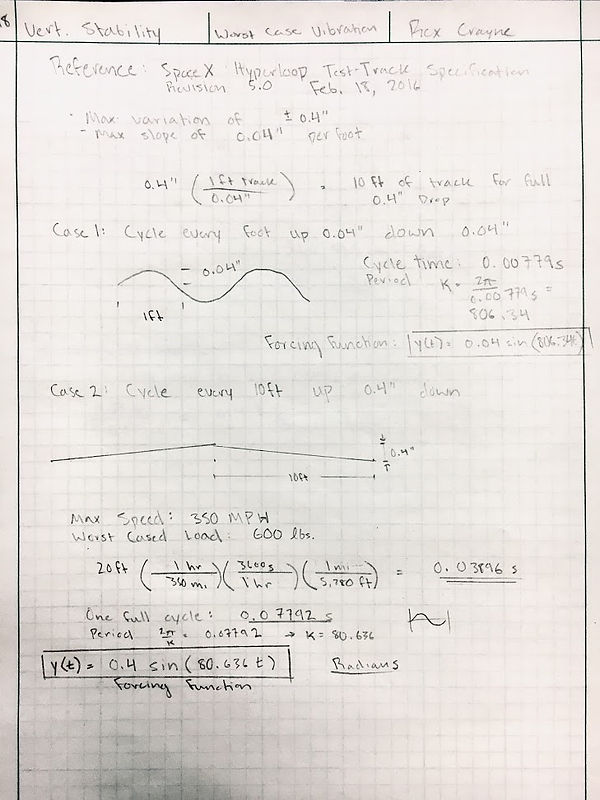 18
Vert. Stability Worst Case Vibration Rex Crayne
Reference: Space X Hyperloop Test-Track Specification
Revision 5.0 Feb. 18, 2016
- Max variation of ± 0.4"
- Max slope of 0.04" per foot
0.4" (1 ft track / 0.04") = 10 ft of track for full
0.4" Drop
Case 1: Cycle every foot up 0.04" down 0.04"
0.04"
1ft
Cycle time: 0.00779s
Period K = 2π / 0.00779s =
806.34
Forcing Function: y(t) = 0.04 sin(806.34t)
Case 2: Cycle every 10ft up 0.4" down
0.4"
10ft
Max Speed: 350 MPH
Worst Cased Load: 600 lbs.
20ft (1 hr / 350 mi.)(3600s / 1 hr)(1 mi / 5,280 ft) = 0.03896 s
One full cycle: 0.07792 s
Period 2π/K = 0.07792 → K = 80.636
y(t) = 0.4 sin(80.636 t) Radians
Forcing Function